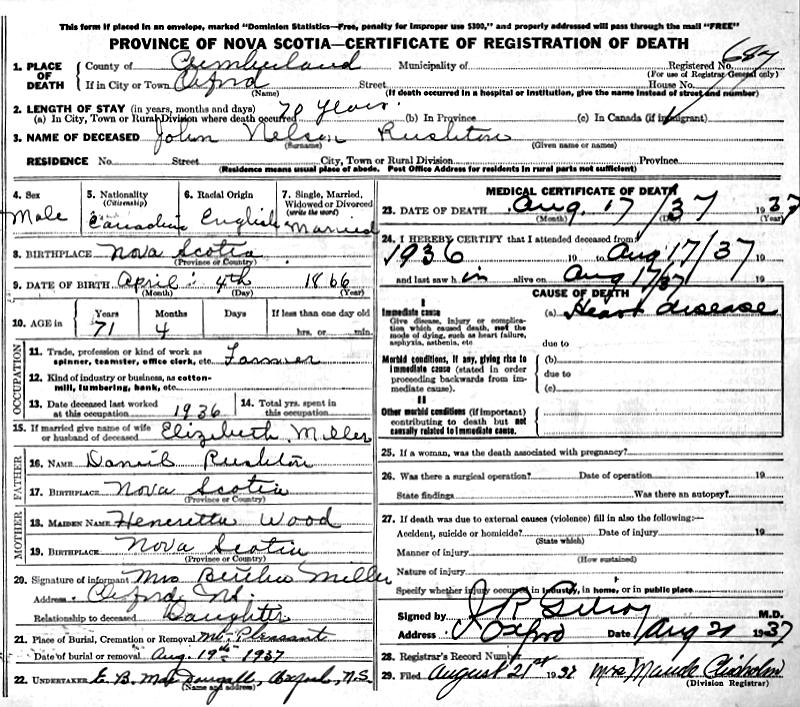 This form if placed in an envelope, marked "Dominion Statistics—Free, penalty for improper use $300," and properly addressed will pass through the mail "FREE"
PROVINCE OF NOVA SCOTIA—CERTIFICATE OF REGISTRATION OF DEATH
1. PLACE OF DEATH
County of Cumberland Municipality of Registered No. 687
(For use of Registrar General only)
If in City or Town Oxford Street House No.
(Name) (If death occurred in a hospital or institution, give the name instead of street and number)
2. LENGTH OF STAY (in years, months and days) 70 years
(a) In City, Town or Rural Division where death occurred (b) In Province (c) In Canada (if immigrant)
3. NAME OF DECEASED John Nelson Rushton
(Surname) (Given name or names)
RESIDENCE No. Street City, Town or Rural Division Province
(Residence means usual place of abode. Post Office Address for residents in rural parts not sufficient)
4. Sex
Male
5. Nationality
(Citizenship)
Canadian
6. Racial Origin
English
7. Single, Married, Widowed or Divorced
(write the word)
Married
8. BIRTHPLACE Nova Scotia
(Province or Country)
9. DATE OF BIRTH April 4th 1866
(Month) (Day) (Year)
10. AGE in
Years Months Days If less than one day old
71 4 hrs. or min.
OCCUPATION
11. Trade, profession or kind of work as spinner, teamster, office clerk, etc. Farmer
12. Kind of industry or business, as cotton-mill, lumbering, bank, etc.
13. Date deceased last worked at this occupation 1936
14. Total yrs. spent in this occupation
15. If married give name of wife or husband of deceased Elizabeth Miller
FATHER
16. NAME Daniel Rushton
17. BIRTHPLACE Nova Scotia
(Province or Country)
MOTHER
18. MAIDEN NAME Heneretta Wood
19. BIRTHPLACE Nova Scotia
(Province or Country)
20. Signature of informant Mrs Miller
Address Oxford NS.
Relationship to deceased Daughter
21. Place of Burial, Cremation or Removal Mt. Pleasant
Date of burial or removal Aug. 19th 1937
22. UNDERTAKER E. B. MacDougall, Oxford, N.S.
(Name and address)
MEDICAL CERTIFICATE OF DEATH
23. DATE OF DEATH Aug. 17/37 1937
(Month) (Day) (Year)
24. I HEREBY CERTIFY that I attended deceased from
1936 19 to Aug 17/37 19
and last saw him alive on Aug 17/37 19
CAUSE OF DEATH
I
Immediate cause
Give disease, injury or complication which caused death, not the mode of dying, such as heart failure, asphyxia, asthenia, etc.
(a) Heart disease
due to
Morbid conditions, if any, giving rise to immediate cause (stated in order proceeding backwards from immediate cause).
(b)
due to
(c)
II
Other morbid conditions (if important) contributing to death but not causally related to immediate cause.
25. If a woman, was the death associated with pregnancy?
26. Was there a surgical operation? Date of operation 19
State findings Was there an autopsy?
27. If death was due to external causes (violence) fill in also the following:—
Accident, suicide or homicide? Date of injury 19
(State which)
Manner of injury
(How sustained)
Nature of injury
Specify whether injury occurred in industry, in home, or in public place
Signed by M.D.
Address Oxford Date Aug 21 1937
28. Registrar's Record Number
29. Filed August 21st 1937 Mrs Maude Chisholm
(Division Registrar)